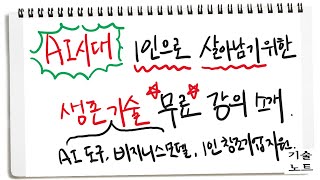 AI시대 1인으로 살아남기 위한
생존기술 무료 강의 소개.
AI 도구, 비지니스모델, 1인 창조기업지원.
기술
노트